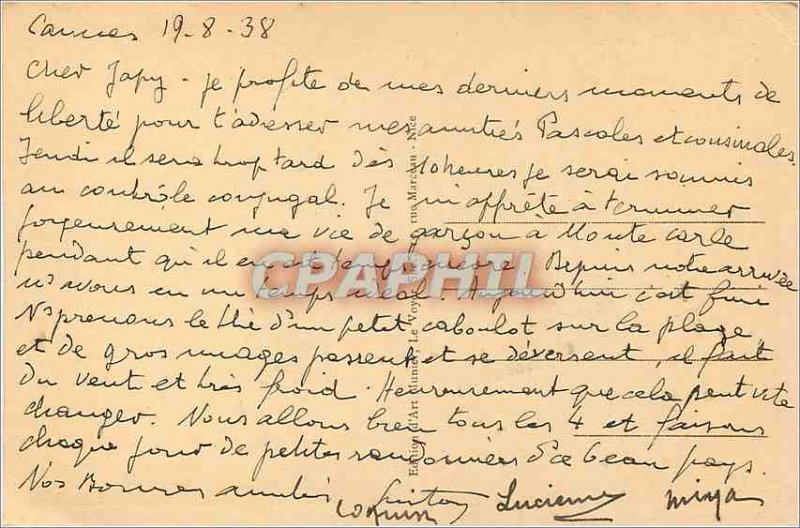 Cannes 19-8-38
Cher Japy - je profite de mes derniers moments de
liberté pour t'adresser mes amitiés Pascales et cousinales.
Jeudi il sera trop tard dès 10 heures je serai soumis
au contrôle conjugal. Je m'apprête à terminer
joyeusement ma vie de garçon à Monte Carle
pendant qu'il en est temps encore. Depuis notre arrivée
ns avons eu un temps idéal. Aujourd'hui c'est fini
Ns prenons le thé d'un petit caboulot sur la plage
et de gros nuages passent et se déversent, il fait
du vent et très froid. Heureusement que cela peut vite
changer. Nous allons bien tous les 4 et faisons
chaque jour de petites randonnées d's ce beau pays.
Nos Bonnes amitiés
Lucienne
CPAPHIL
Edition d'Art Munier Le Voyageur rue Marceau - Nice